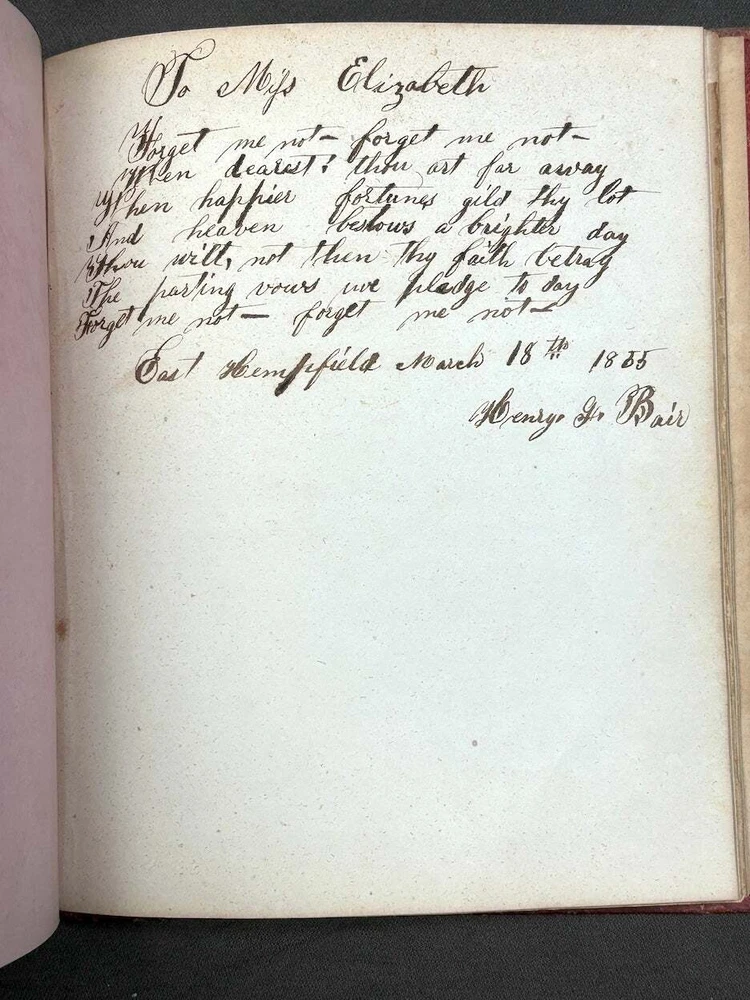 To Miss Elizabeth
Forget me not — forget me not —
When dearest! thou art far away
When happier fortunes gild thy lot
And heaven bestows a brighter day
Thou wilt, not then thy faith betray
The parting vows we pledge to day
Forget me not — forget me not —
East Hempfield March 18th 1855
Henry G. Bair